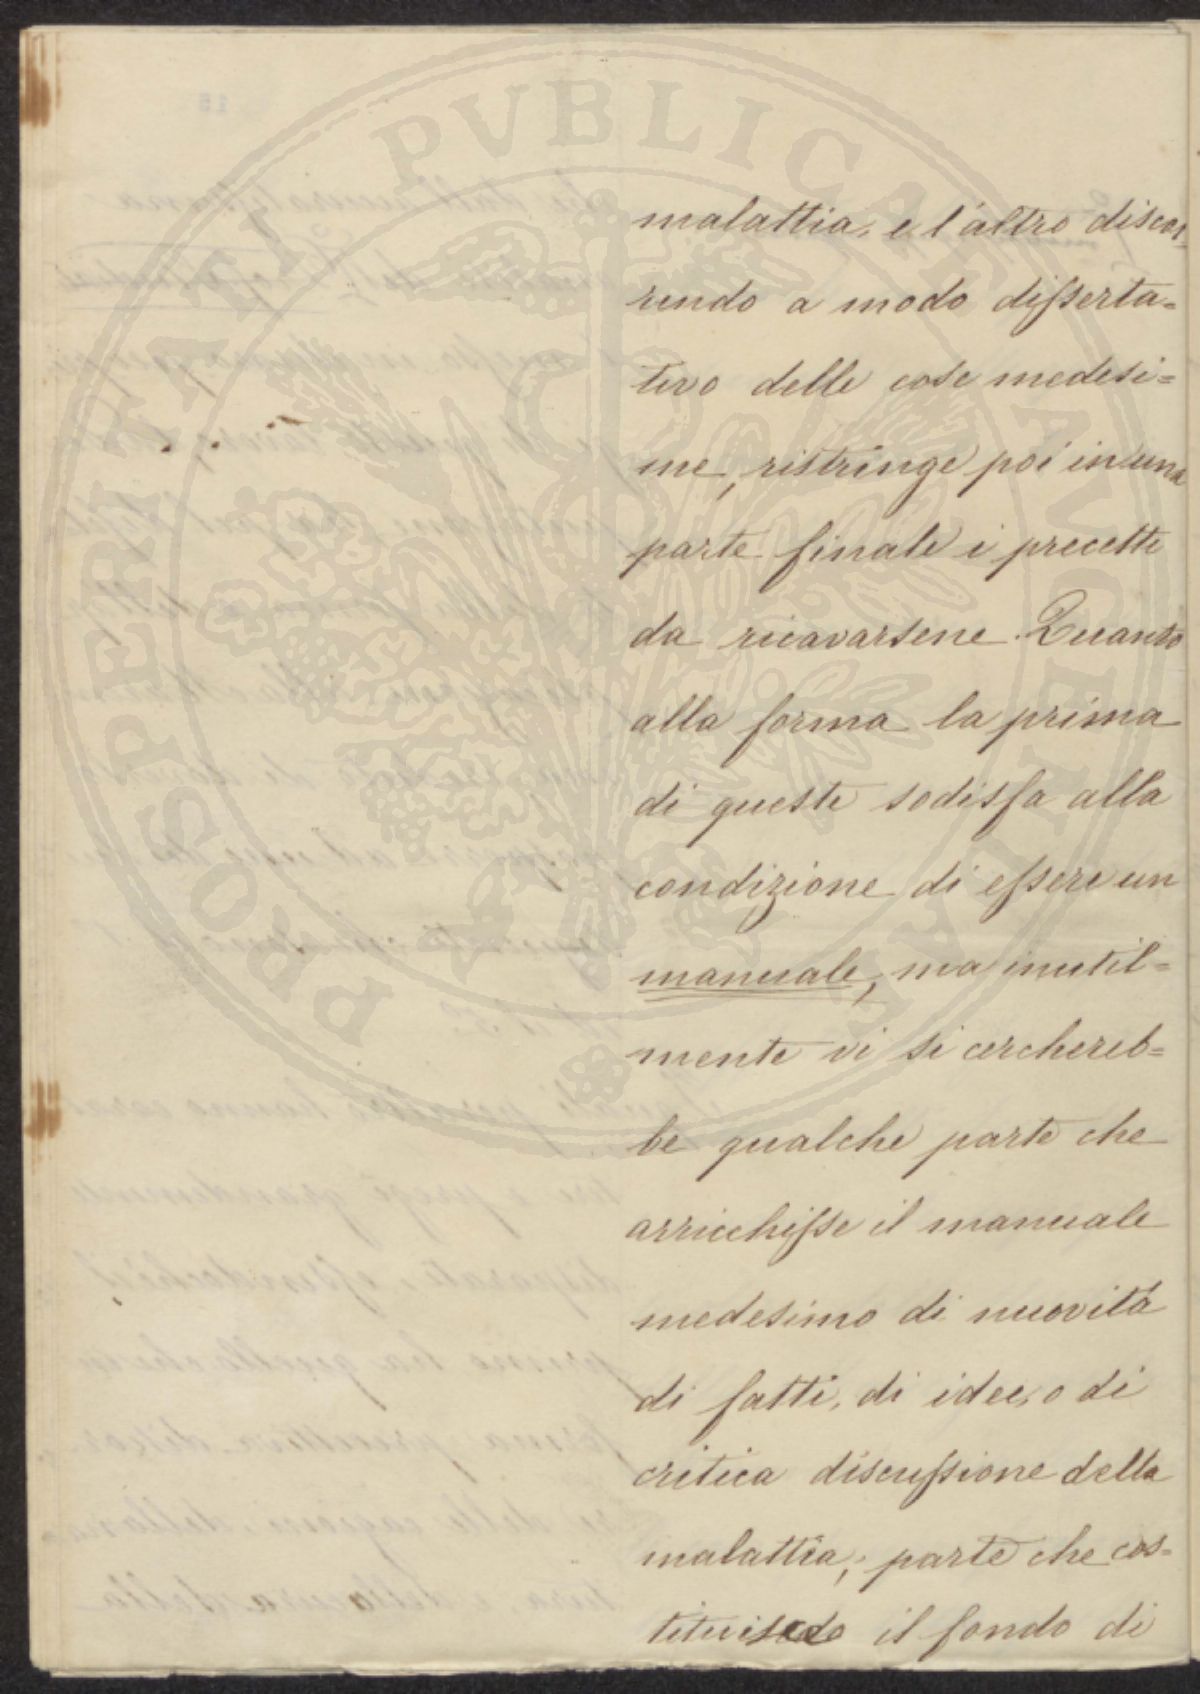 malattia, e l'altro discor-
rendo a modo disserta=
tivo delle cose medesi=
me, ristringe poi in una
parte finale i precetti
da ricavarsene. Quanto
alla forma la prima
di queste sodisfa alla
condizione di essere un
manuale, ma inutil=
mente vi si cerchereb=
be qualche parte che
arricchisse il manuale
medesimo di nuovità
di fatti, di idee, o di
critica discussione della
malattia; parte che cos-
tituisce il fondo di
PROSPERITATI PVBLICAE AVGENDAE